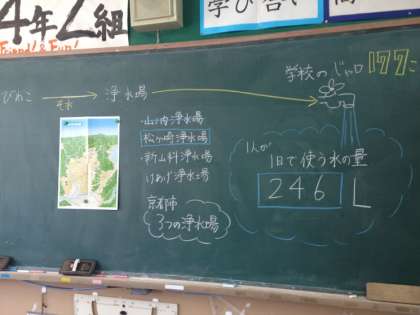 4年2組
Friend! & Fun!
学び合い
びわこ
そ水
浄水場
学校のじゃ口
177こ
・山ノ内浄水場
松ヶ崎浄水場
・新山科浄水場
けあげ浄水場
京都市
3つの浄水場
1人が
1日で使う水の量
246 L